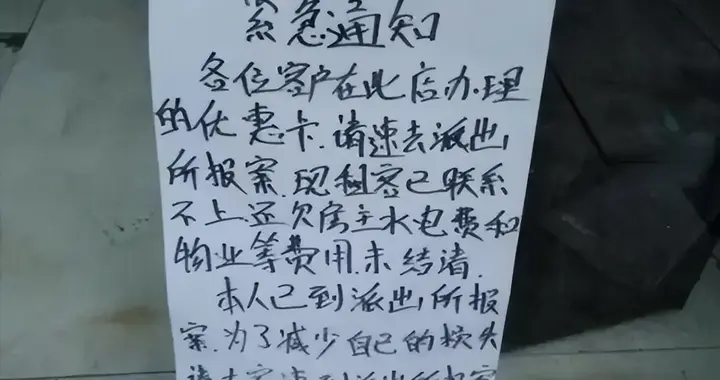 紧急通知
各位客户在此店办理
的优惠卡.请速去派出
所报案.现租客已联系
不上.还欠房主水电费和
物业等费用.未结清.
本人已到派出所报
案.为了减少自己的损失
请大家速到派出所报案